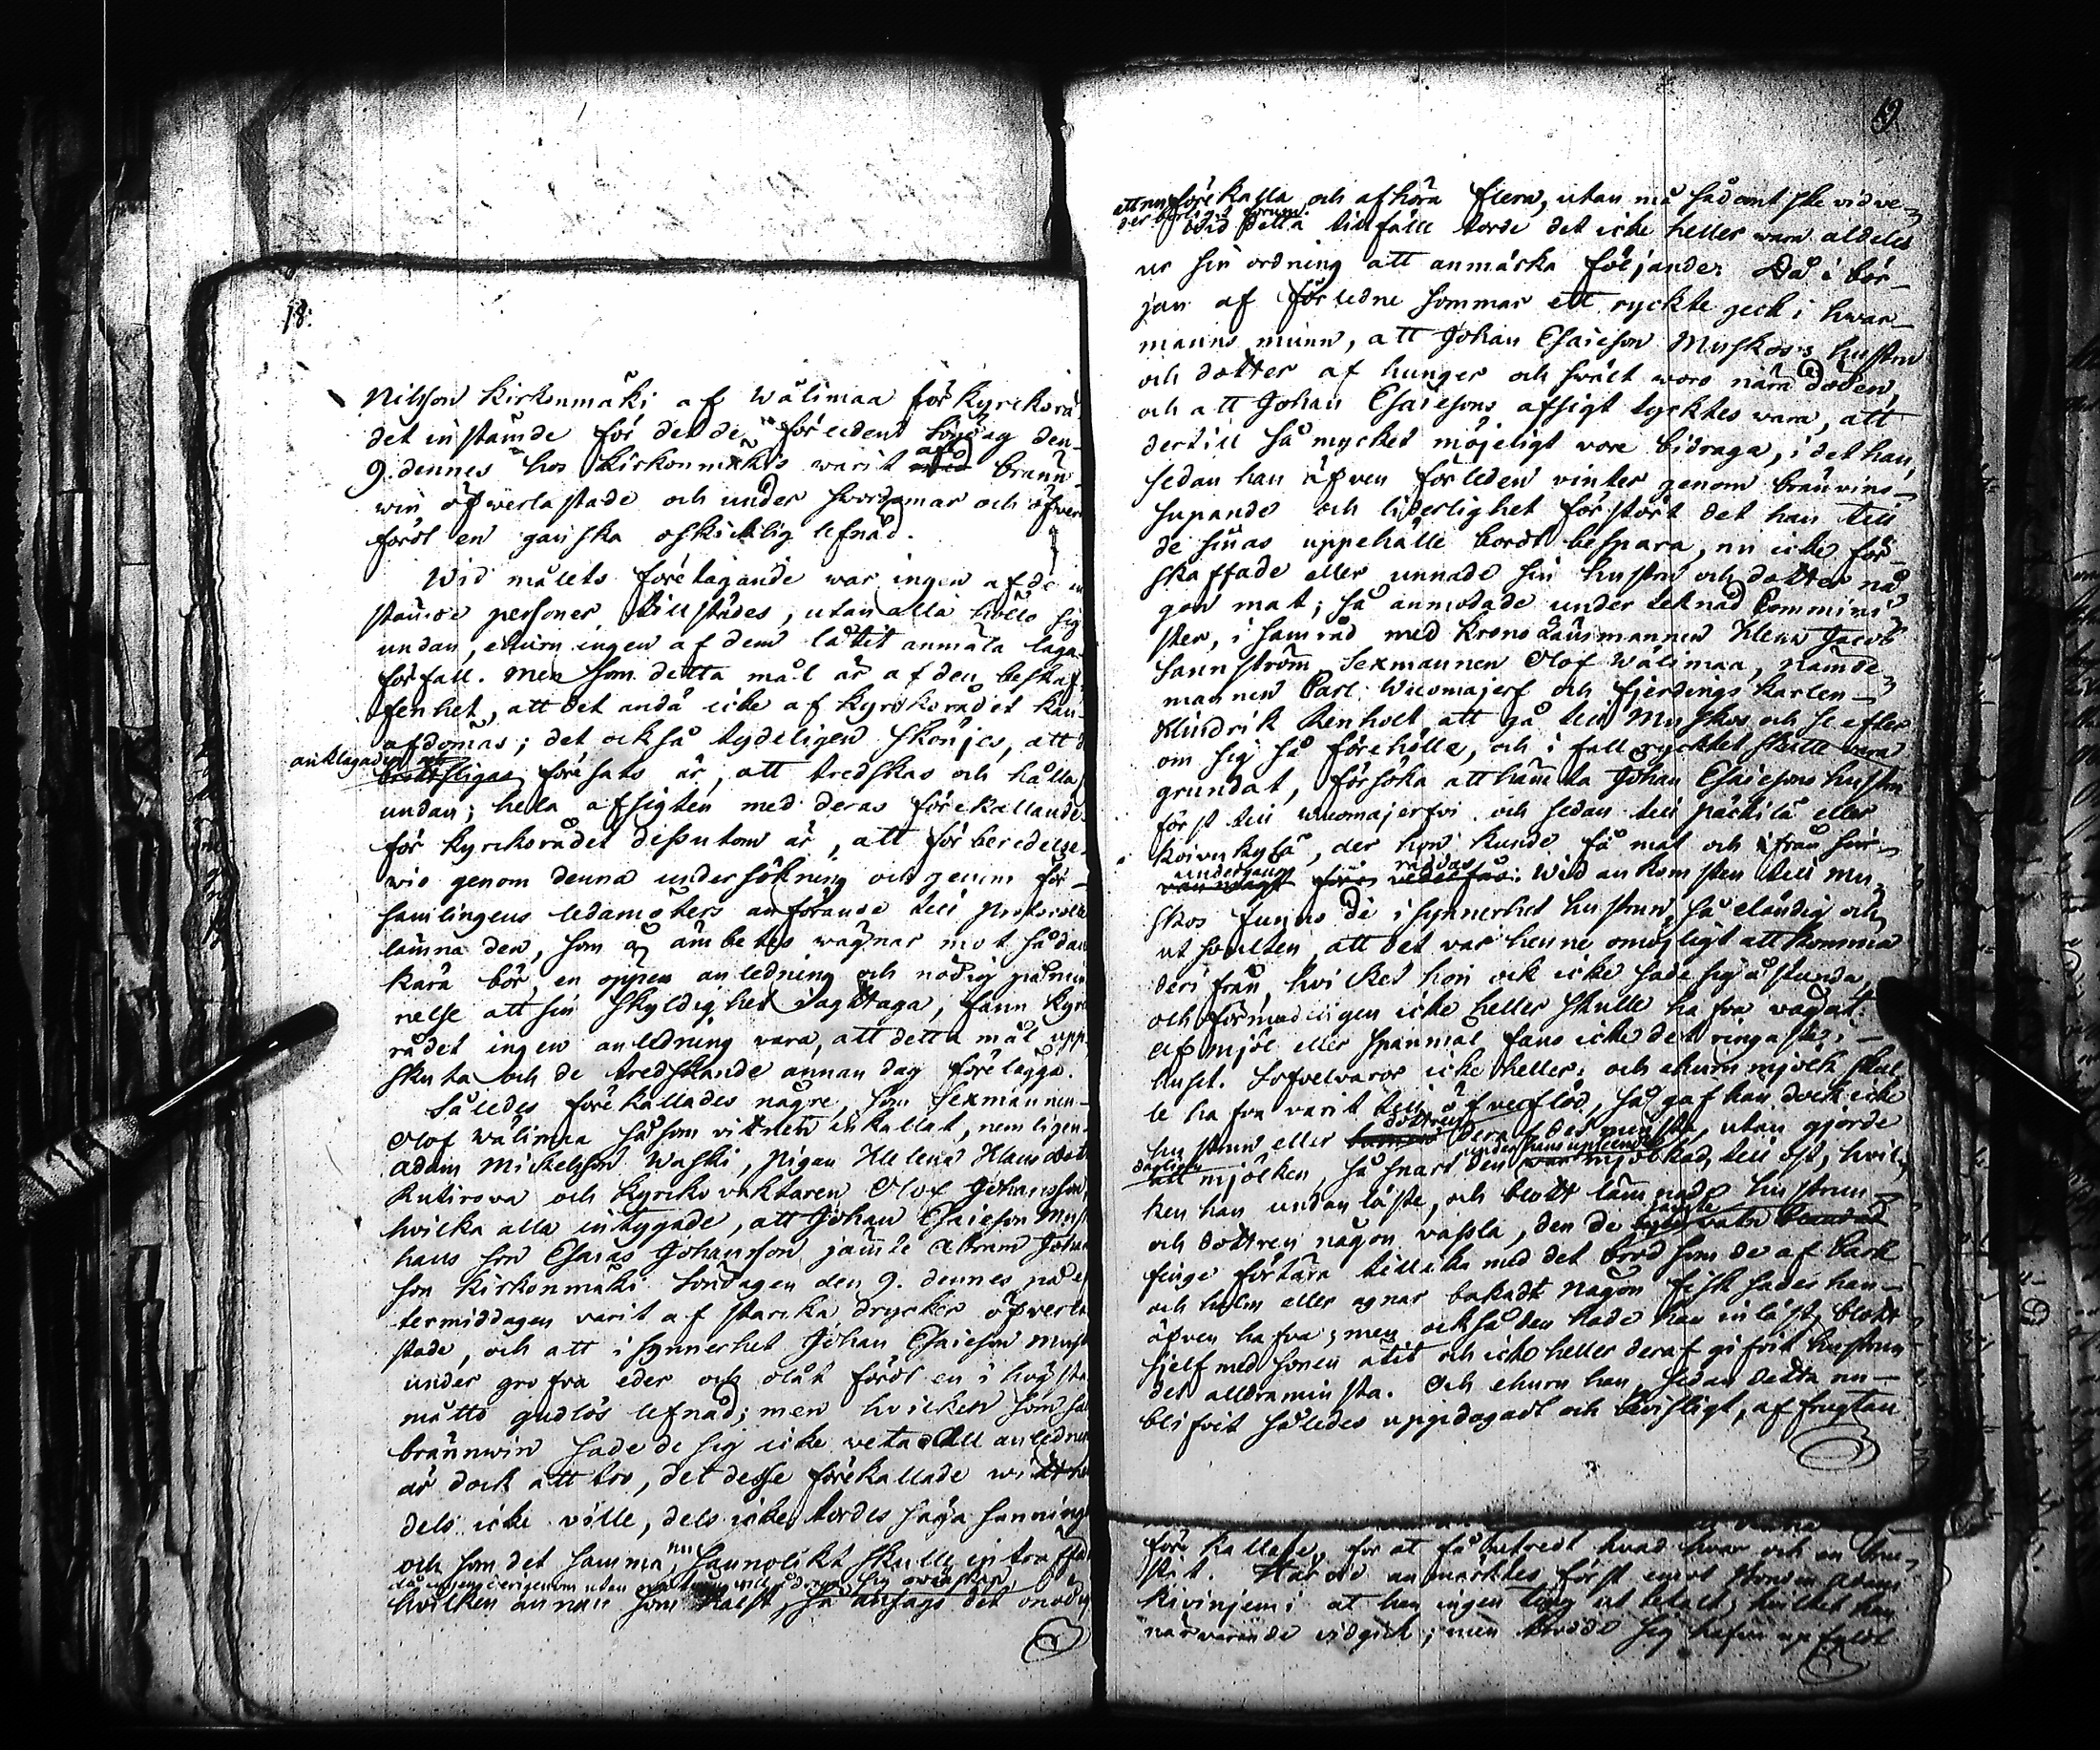 18.
Nilsson Kirkonmäki af Wälimaa för kyrkorå-
det instämde för det de förledent söndag den
9. dennes hos Kirkonmäkis warit af bränn-
win öfwerlastade och under swordomar och
fördt en ganska oskicklig lefnad.
Wid målets företagande war ingen af de in
stämde personer tillstädes, utan alla höllo sig
undan, ehuru ingen af dem låtit anmäla laga
förfall. Men som detta mål är af den beskaf-
fenhet, att det ändå icke af kyrkorådet kan
afdömas; det också tydeligen skönjes, att
anklagades
föresats är, att tredskas och hålla
undan; hela afsigten med deras förekallande
för kyrkorådet dessutom är, att förberedelse-
wis genom denna undersökning och genom för-
samlingens ledamöters anförande till protocoll
lämna den, som å ämbetes wägnar mot sådan
kära bör, en öppen anledning och nödig påmin
nelse att sin skyldighet iagttaga, fann kyrko
rådet ingen anledning vara, att detta mål upp
skuta och de tredskande annan dag förelägga.
Således förekallades någre, som Sexmannen
Olof Wälimaa såsom vittnen inkallat, nemligen
Adam Mickelsson Waski, pigan Helena Klemsdott
Kutirova och kyrkovaktaren Olof Johansson,
hvilka alla intygade, att Johan Esaieson Musk
hans son Esaias Johansson jämte Abram Johan
son Kirkonmäki söndagen den 9. dennes på ef
termiddagen varit af starcka drycker öfverla
stade, och att i synnerhet Johan Esaieson Musk
under grofva eder och olåt fördt en i högsta
måtto gudlös lefnad; men hvilken som
brännwin sade de sig icke veta. All anledn
är dock att tro, det desse förekallade
dels icke ville, dels icke tordes säga sanning
och som det samma nu sannolikt skulle inträffa
hvilken annan som hälst, så ansågs det onödi

19.
att nu förekalla och afhöra flera, utan må sådant ske vid ve-
derbörligt forum.
Wid detta tillfälle torde det icke heller wara aldeles
ur sin ordning att anmärka följande: Då i bör-
jan af förledne sommar ett ryckte geck i hwar-
manns munn, att Johan Esaieson Muskos hustru
och dotter af hunger och swält woro nära döden,
och att Johan Esaiesons afsigt tycktes wara, att
dertill så mycket möjeligt vore bidraga, i det han,
sedan han äfven förleden vinter genom bränvins-
supande och liderlighet förstört det han till
de sinas uppehälle bordt bespara, nu icke för-
skaffade eller unnade sin hustru och dotter nå-
gon mat; så anmodade undertecknad Comminis-
ter, i samråd med Krono Länsmannen Klem Jacob
Sannström Sexmannen Olof Wälimaa, Nämde-
mannen Carl Wuomajerf och fjerdingskarlen
Hindrik Renholt att gå till Muskos och se efter
om sig så förehölle, och i fall rycktet skulle vara
grundat, försöka att hämta Johan Esaiesons hustru
först till Wuomajerfvi och sedan till Päckilä eller
Koivukylä, der hon kunde få mat och ifrån sin
undergång räddas. Wid ankomsten till Mu-
skos funno de i synnerhet hustrun så eländig och
utsvulten, att det var henne omögligt att komma
derifrån, hvilket hon ock icke sade sig åstunda,
och förmodligen icke heller skulle hafva vågat.
Af mjöl eller spanmål fans icke det ringaste i
huset. Sofvelvaror icke heller; och ehuru mjölk skul
le hafva varit till öfverflöd, så gaf han dock icke
hustrun eller dottren deraf det minsta, utan gjorde
dageligen
mjölken, så snart den under hans upseende mjölkad, till ost, hvil-
ken han undan läste, och blott lämnade hustrun
och dottren någon vassla, den de
finge förtära tillika med det bröd som de af bark
och halm eller agnar bakadt. Någon fisk sades han
äfven hafva; men också den hade han inläst, blott
sjelf med sonen ätit och icke heller deraf gifvit hustrun
det alldraminsta. Och ehuru han, sedan detta nu
blifvit således uppdagadt och bevisligt, af fruktan

förekallade, för at få utredt hvad hvar och en
Härvid anmärktes först emot Adam
Kivinjemi at han ingen ting ut betalt, hvilket han
närvarande vidgick; men trodde sig hafva upfyldt